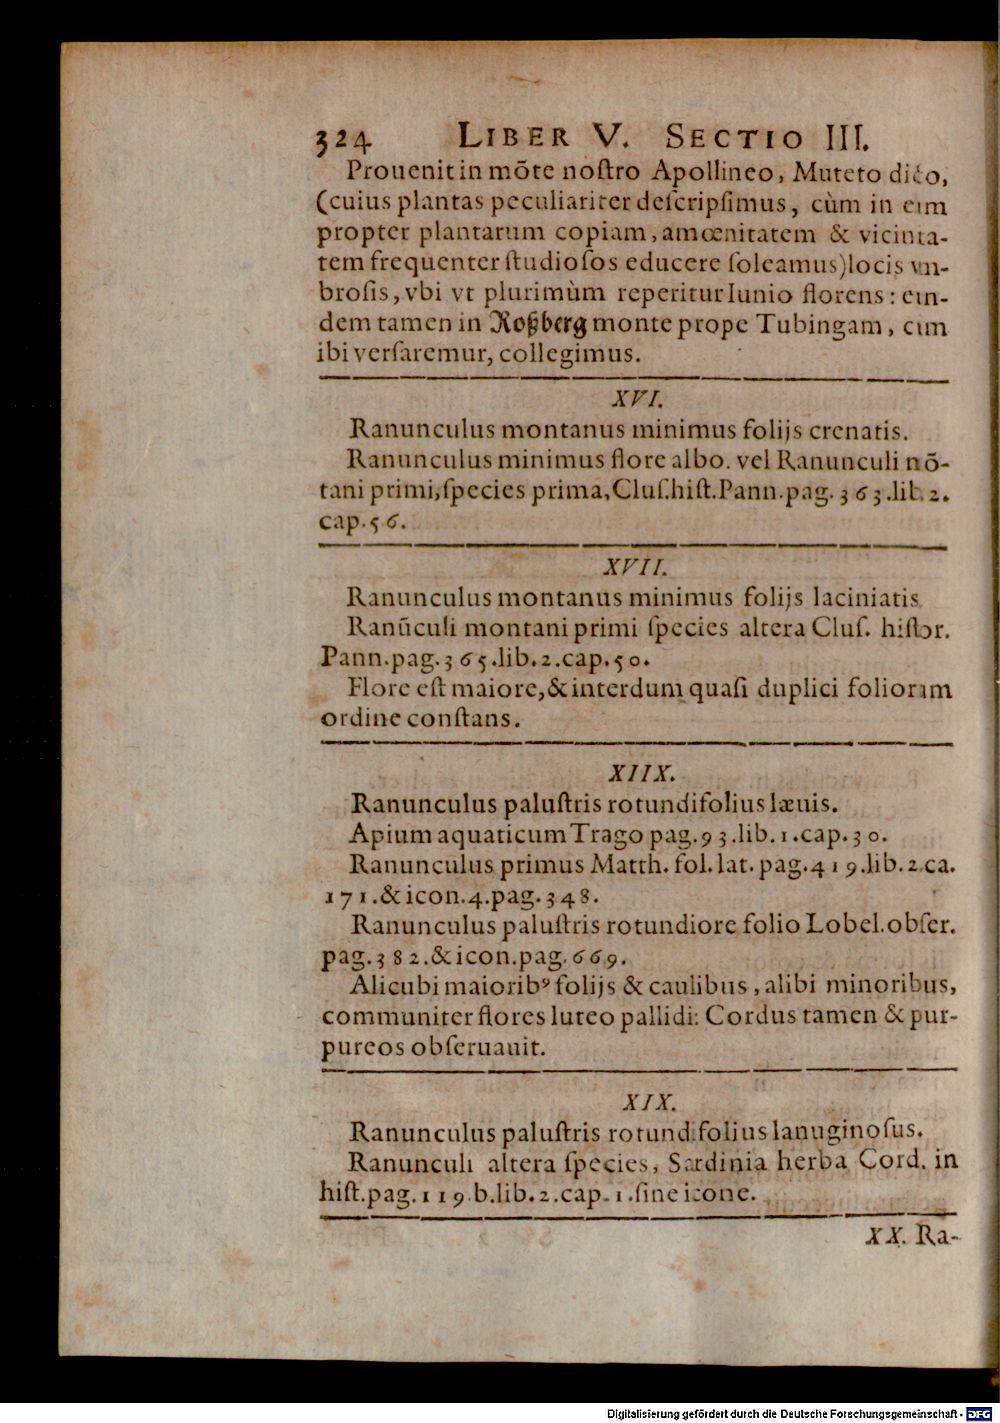 324 LIBER V. SECTIO III.
Prouenit in mõte noſtro Apollineo, Muteto dicto,
(cuius plantas peculiariter deſcripſimus, cùm in eum
propter plantarum copiam, amœnitatem & vicinita-
tem frequenter ſtudioſos educere ſoleamus) locis vm-
broſis, vbi vt plurimùm reperitur Iunio florens: eun-
dem tamen in Roßberg monte prope Tubingam, cum
ibi verſaremur, collegimus.
XVI.
Ranunculus montanus minimus folijs crenatis.
Ranunculus minimus flore albo. vel Ranunculi mõ-
tani primi, ſpecies prima, Cluſ. hiſt. Pann. pag. 363. lib. 2.
cap. 56.
XVII.
Ranunculus montanus minimus folijs laciniatis
Ranūculi montani primi ſpecies altera Cluſ. hiſtor.
Pann. pag. 365. lib. 2. cap. 50.
Flore eſt maiore, & interdum quaſi duplici foliorum
ordine conſtans.
XIIX.
Ranunculus paluſtris rotundifolius læuis.
Apium aquaticum Trago pag. 93. lib. 1. cap. 30.
Ranunculus primus Matth. fol. lat. pag. 419. lib. 2 ca.
171. & icon. 4. pag. 348.
Ranunculus paluſtris rotundiore folio Lobel. obſer.
pag. 382. & icon. pag. 669.
Alicubi maioribꝰ folijs & caulibus, alibi minoribus,
communiter flores luteo pallidi: Cordus tamen & pur-
pureos obſeruauit.
XIX.
Ranunculus paluſtris rotundifolius lanuginoſus.
Ranunculi altera ſpecies, Sardinia herba Cord. in
hiſt. pag. 119 b. lib. 2. cap. 1. ſine icone.
XX. Ra-
Digitalisierung gefördert durch die Deutsche Forschungsgemeinschaft - DFG